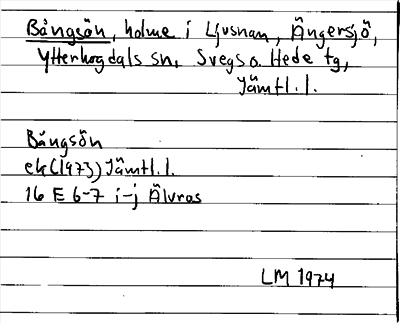 Bångsön, holme i Ljusnan, Ängersjö,
Ytterhogdals sn, Svegs o. Hede tg,
Jämtl. l.
Bångsön
ek (1973) Jämtl. l.
16 E 6-7 i-j Älvros
LM 1974